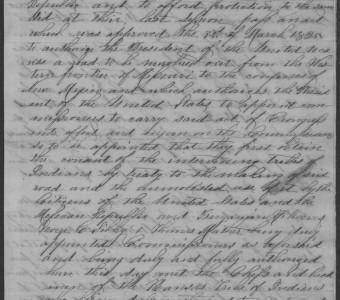 Republic and to afford protection to the same
did at their last session pass an act
which was approved the 3d of March 1825
to authorize the President of the United States
a road to be marked out from the Wes
tern frontier of Missouri to the confines of
New Mexico and which authorizes the Presid
ent of the United States to appoint com
missioners to carry said act of Congress
into effect and enjoins on the Commissioners
so to be appointed that they first obtain
the consent of the intervening tribes
Indians by treaty to the marking of said
road and the unmolested use of it by the
Citizens of the United States and the
Mexican Republic and Benjamin H Reeves
George C Sibley & Thomas Mather being duly
appointed Commissioners as aforesaid
and being duly and fully authorized
have this day met the Chiefs and head
men of the Kansas tribe of Indians